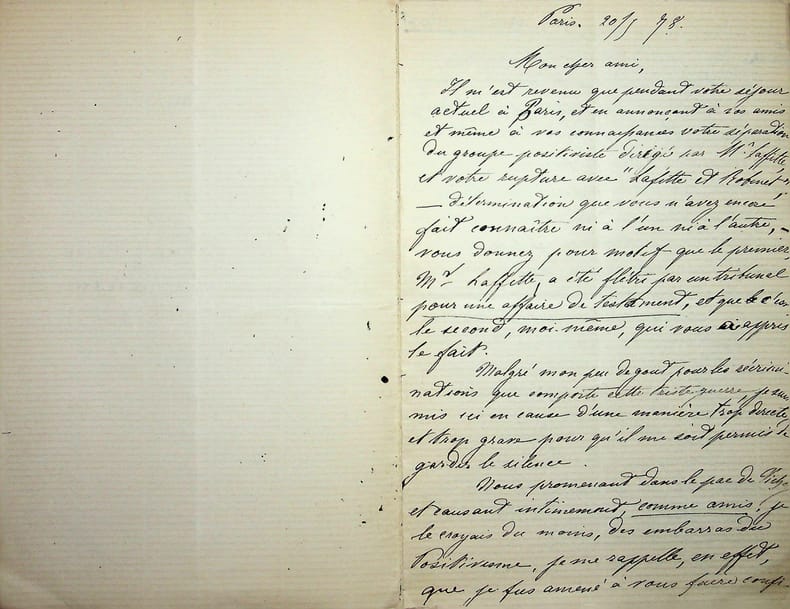 Paris. 20/5 78.
Mon cher ami,
Il m'est revenu que pendant votre séjour
actuel à Paris, et en annonçant à vos amis
et même à vos connaissances votre séparation
du groupe positiviste dirigé par Mr. Laffitte,
et votre rupture avec "Lafitte et Robinet"
— détermination que vous n'avez encore
fait connaître ni à l'un ni à l'autre, —
vous donnez pour motif que le premier,
Mr. Laffitte, a été flétri par un tribunal
pour une affaire de testament, et que c'est
le second, moi-même, qui vous ai appris
le fait.
Malgré mon peu de gout pour les récrimi-
nations que comporte cette triste guerre, je suis
mis ici en cause d'une manière trop directe
et trop grave pour qu'il me soit permis de
garder le silence.
Nous promenant dans le parc de
et causant intimement, comme amis, je
le croyais du moins, des embarras du
Positivisme, je me rappelle, en effet,
que je fus amené à vous faire confi-